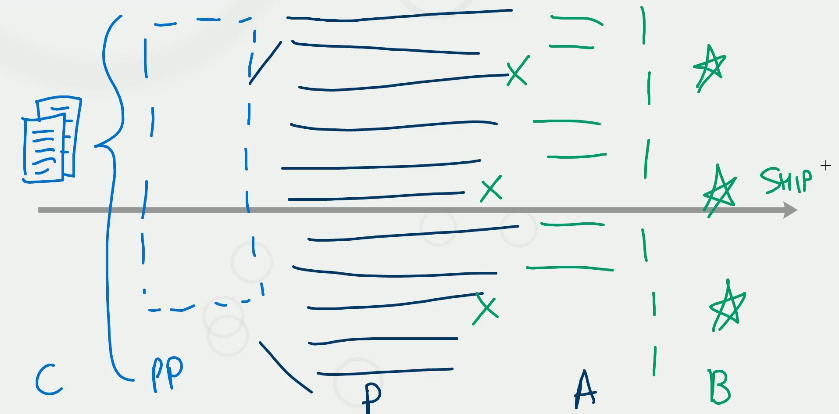 SHIP
C PP P A B